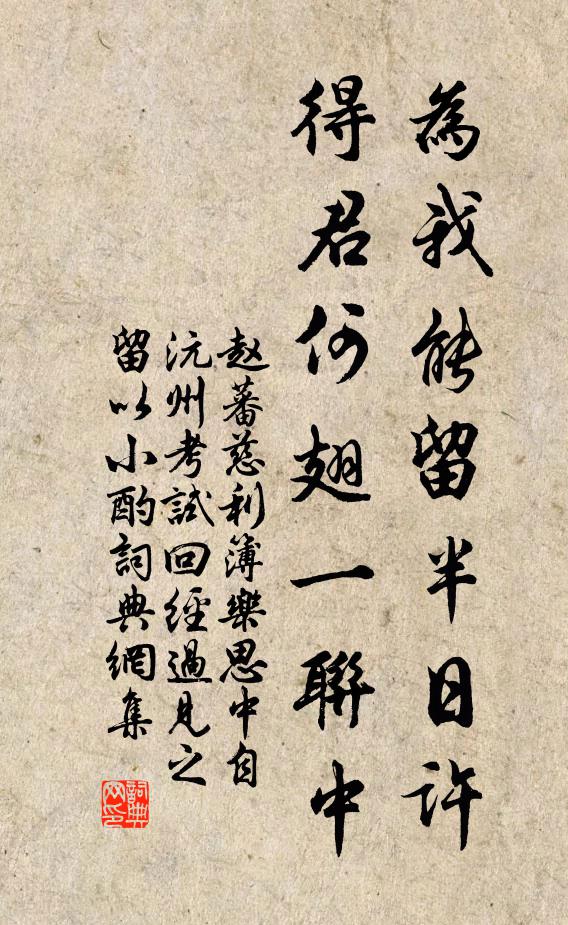 為我能留半日許
得君何翅一聯中
赵蕃慈利簿樂思中自
沅州考試回經過見之
留以小酌詞典網集
詞典
网印